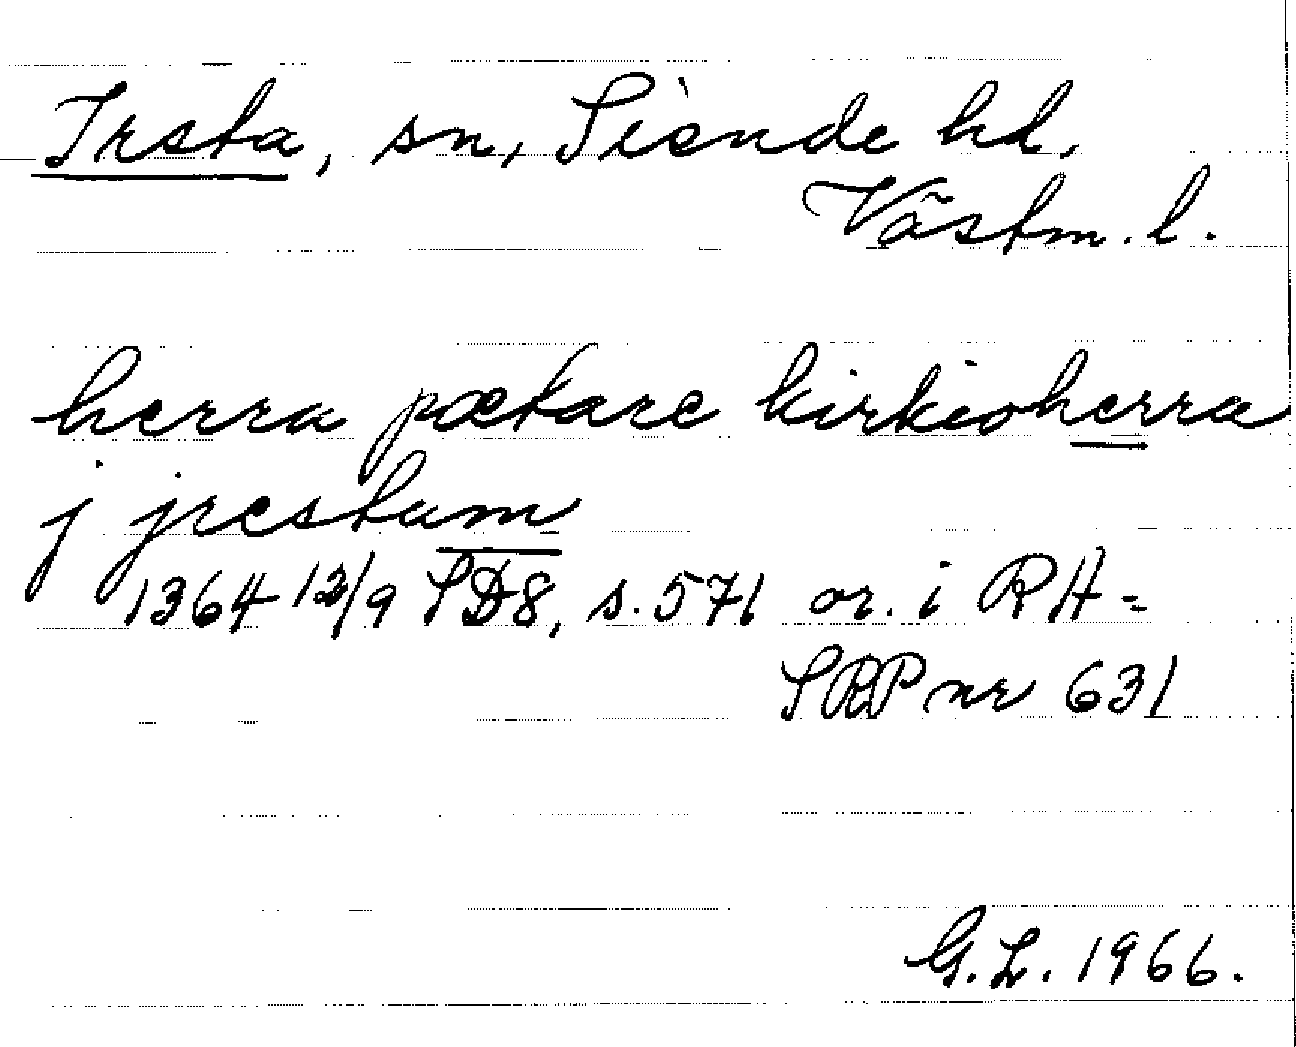 Irsta, sn, Siende hd,
Västm. l.
herra pætare kirkioherra
j jrestum
1364 13/9 SD8, s. 571 or. i RA =
SRP nr 631
G.L. 1966.